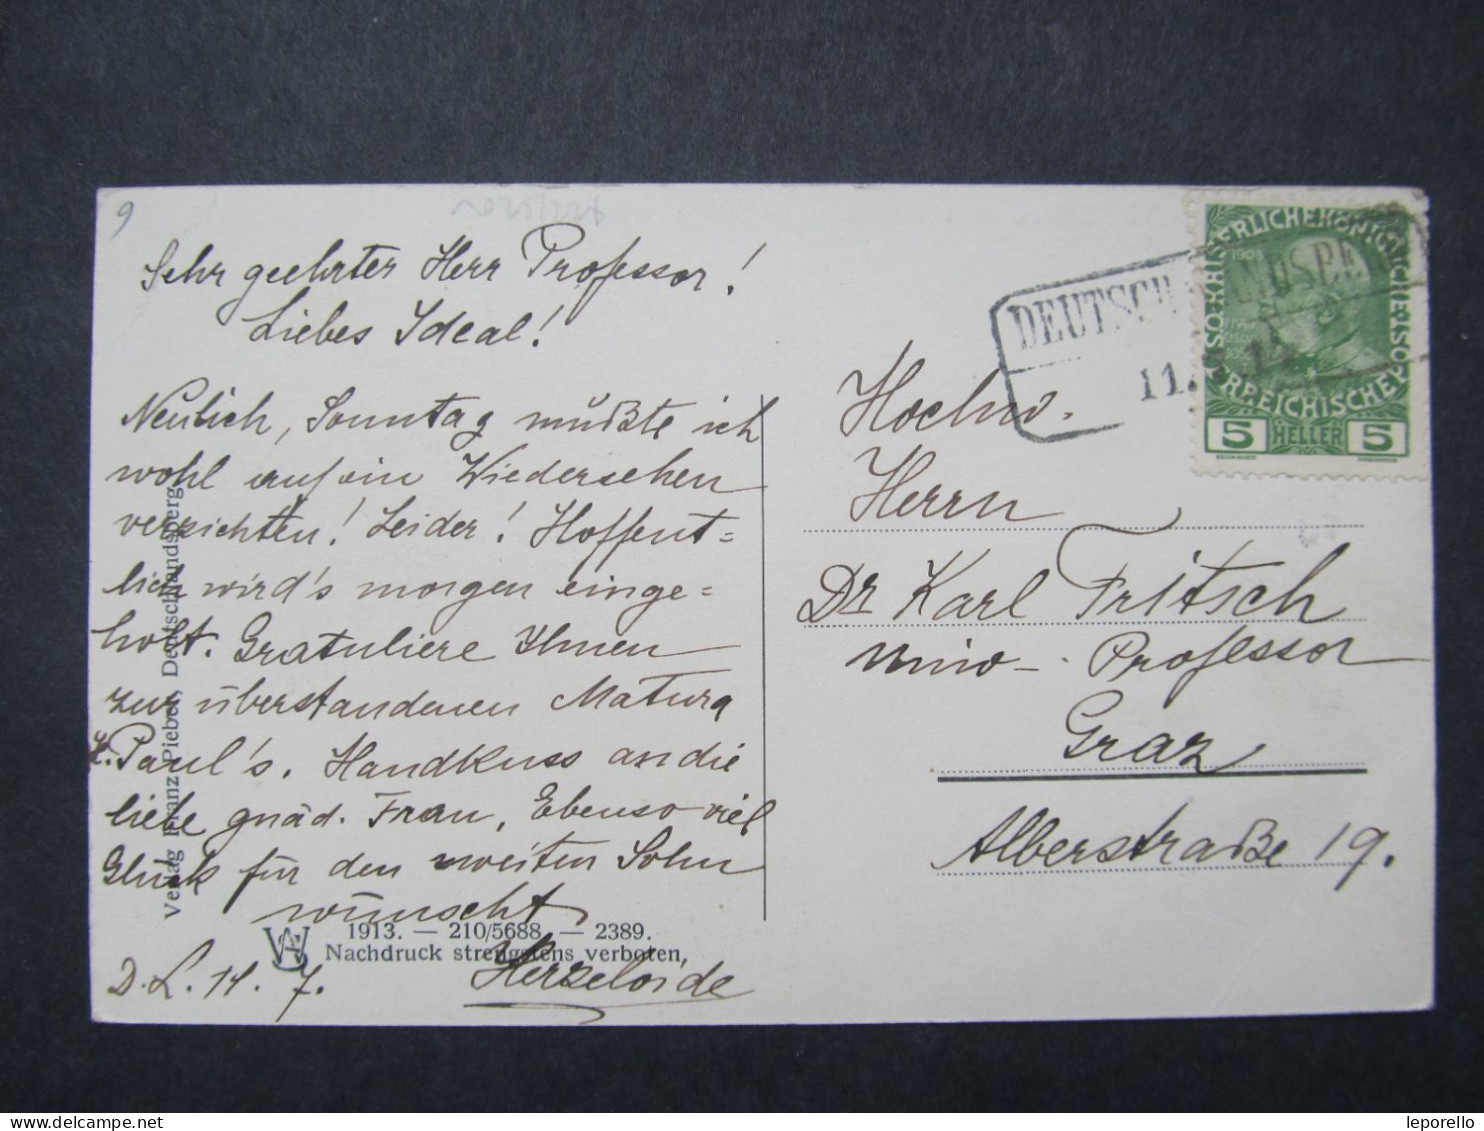 9
Sehr geehrter Herr Professor!
Liebes Ideal!
Neulich, Sonntag mußte ich
wohl auf ein Wiedersehen
verzichten! Leider! Hoffent=
lich wird's morgen einge=
holt. Gratuliere Ihnen
zur überstandenen Matura
Paul's. Handkuss an die
liebe gnäd. Frau, Ebenso viel
Glück für den zweiten Sohn
wünscht
D. L. 11. 7.
Herzeloide
Verlag Franz Pieber, Deutschlandsberg
1913. — 210/5688 — 2389.
Nachdruck strengstens verboten,
DEUTSCH LANDSBERG
11.
SO. KAISERLICHE KÖNIGLICHE
ÖSTERREICHISCHE POST
1908
5 HELLER 5
Hochw.
Herrn
Dr Karl Fritsch
Professor
Graz
Alberstraße 19.
leporello